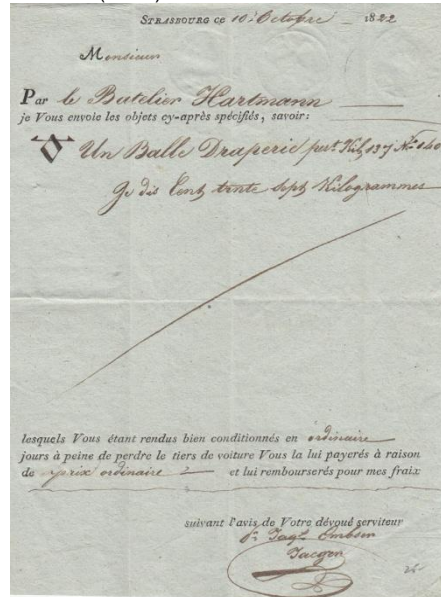 STRASBOURG ce 10. Octobre 1822
Monsieur
Par le Batelier Hartmann
je Vous envoie les objets cy-après spécifiés, savoir:
Un Balle Draperie pest Kil 137 No. 140
Je dis Cent trente Sept Kilogrammes
lesquels Vous étant rendus bien conditionnés en ordinaire
jours à peine de perdre le tiers de voiture Vous la lui payerés à raison
de prix ordinaire et lui rembourserés pour mes fraix
suivant l'avis de Votre dévoué serviteur